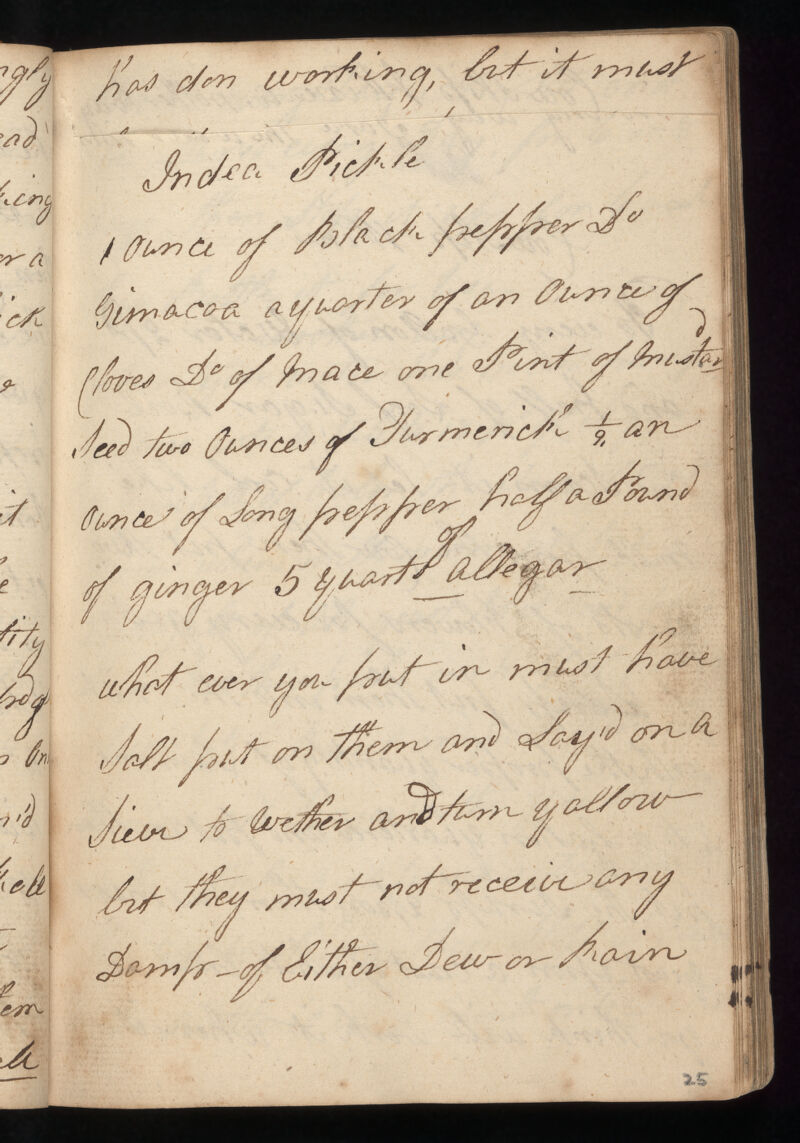 has don working, but it must
Indea Pickle
1 ounce of Black pepper Do
Gimacoa a quarter of an Ounce of
Cloves Do of Mace one Pint of Mustard
Seed two Ounces of Turmerick 1/2 an
ounce of Long pepper half a Pound
of ginger 5 quarts of allegar
what ever you put in must have
Salt put on them and Lay'd on a
Sieve to wether and turn yallow
but they must not receive any
Damp - of Either Dew or Rain
25